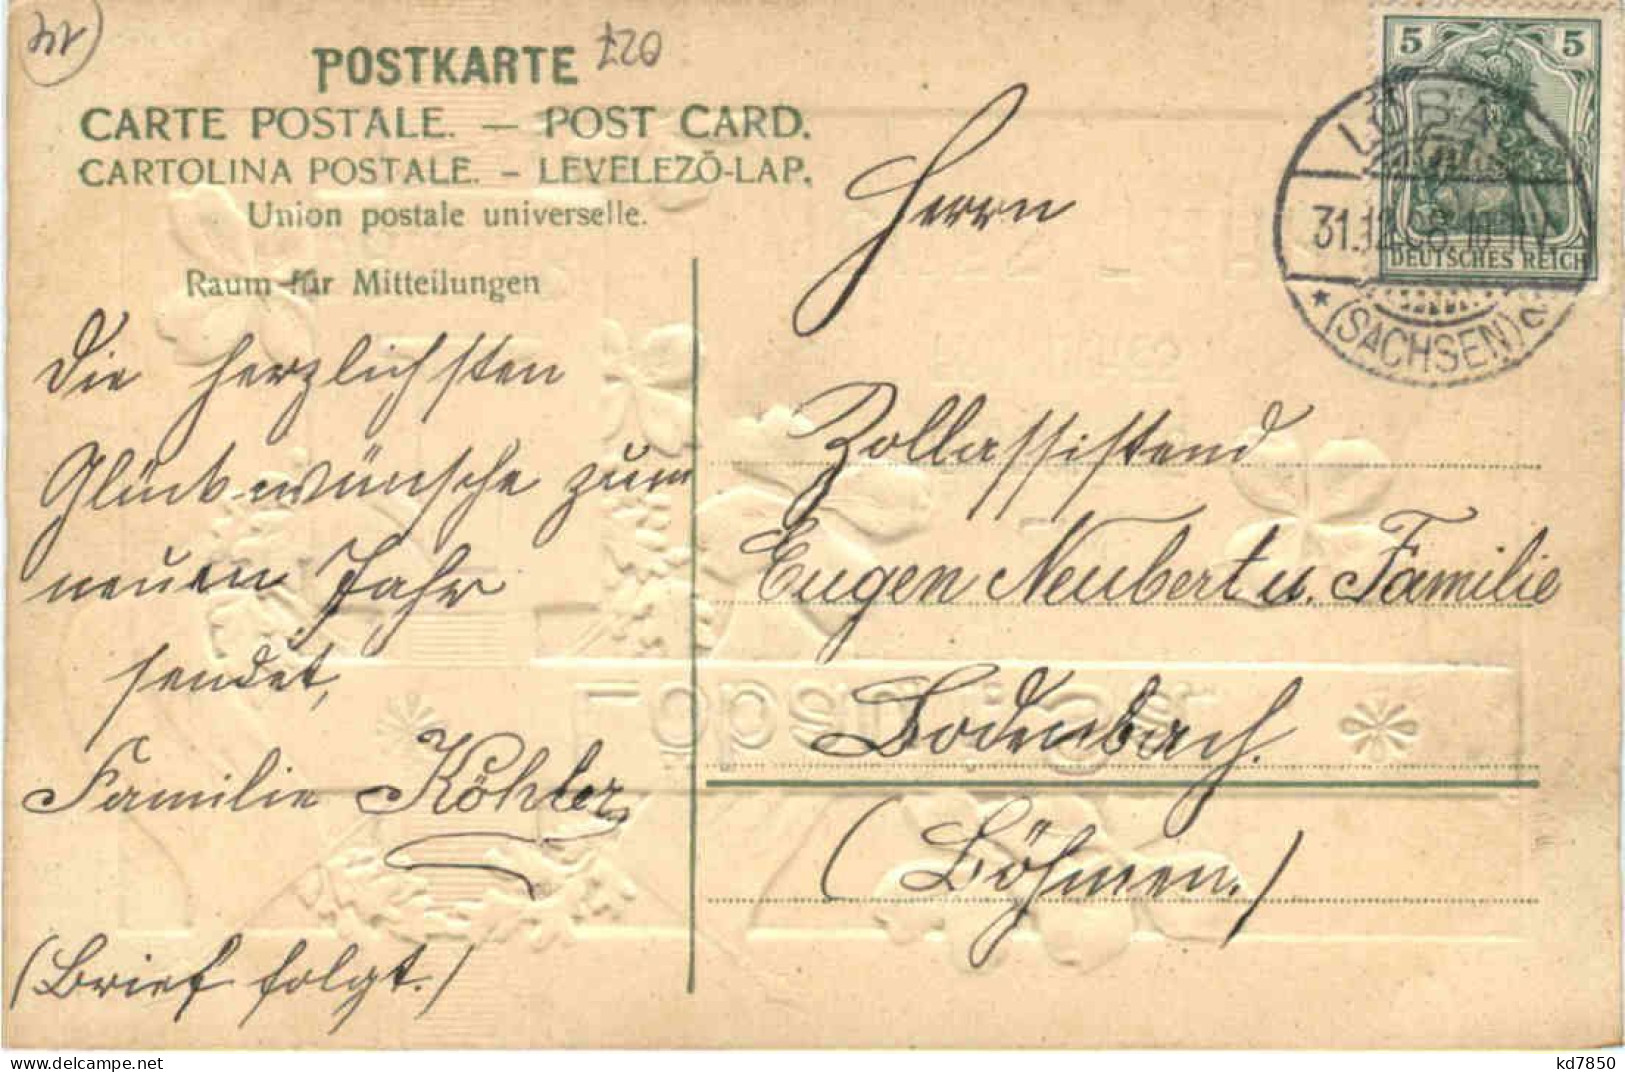 POSTKARTE
CARTE POSTALE. — POST CARD.
CARTOLINA POSTALE. – LEVELEZŐ-LAP.
Union postale universelle.
Raum für Mitteilungen
Die herzlichsten
Glückwünsche zum
neuen Jahr
sendet,
Familie Köhler
(Brief folgt.)
5 5
DEUTSCHES REICH
LÖBAU
31.12.08.10
* (SACHSEN) c
Herrn
Zollassistend
Eugen Neubert u. Familie
Bodenbach.
(Böhmen.)
kd7850